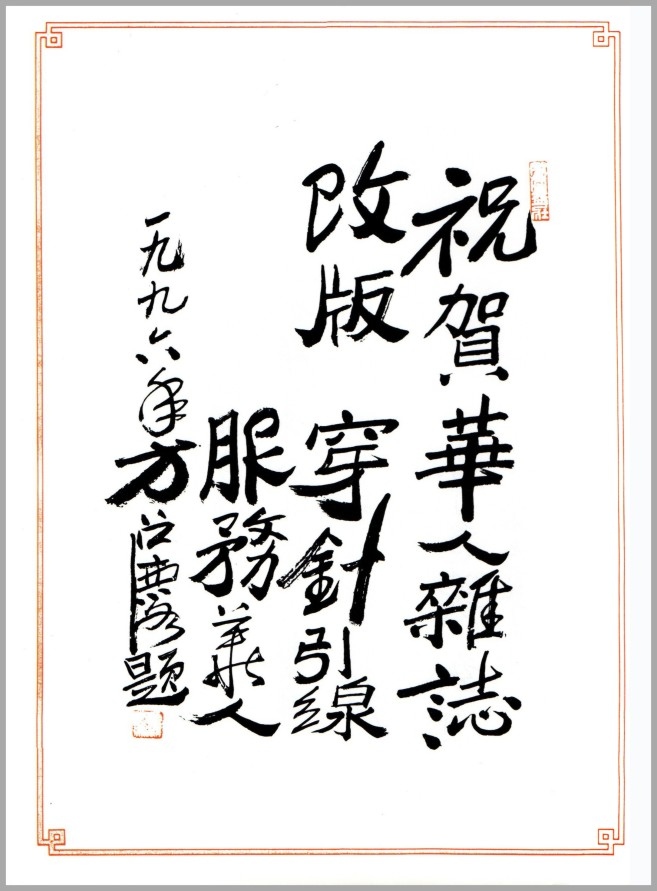 祝賀華人雜誌
改版　穿針引線
服務華人
一九九六年方召麐題